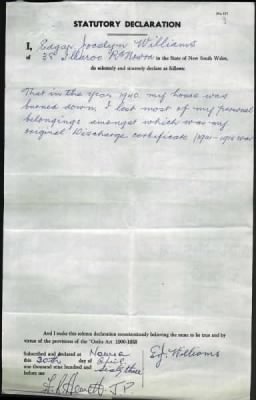 STATUTORY DECLARATION
I, Edgar Jocelyn Williams
of 38 Illaroo Rd Nowra in the State of New South Wales,
do solemnly and sincerely declare as follows:
That in the year 1940 my house was
burned down, I lost most of my personal
belongings amongst which was my
original Discharge certificate (1914-1918 war
And I make this solemn declaration conscientiously believing the same to be true and by
virtue of the provisions of the "Oaths Act 1900-1953
Subscribed and declared at Nowra
this 30th day of April
one thousand nine hundred and sixty three
before me
E.J. Williams
J.P.